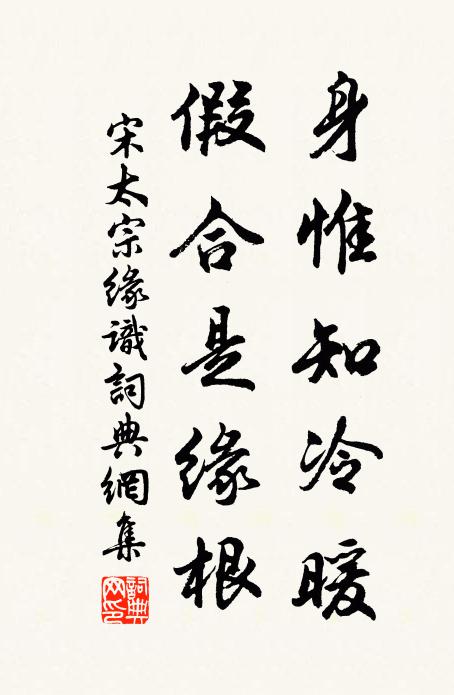 身惟知冷暖
假合是缘根
宋太宗缘識詞典網集
詞典網印